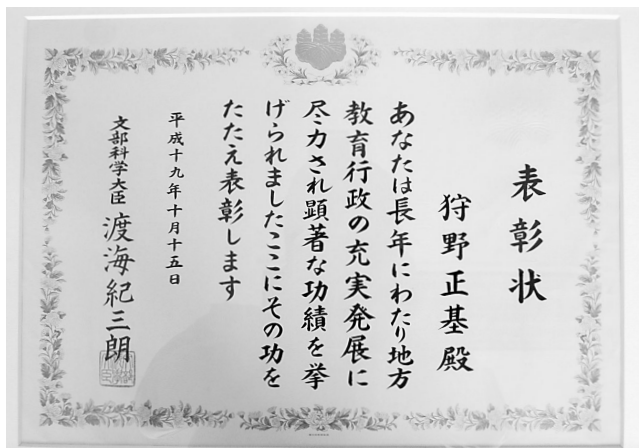 表彰状
狩野正基殿
あなたは長年にわたり地方
教育行政の充実発展に
尽力され顕著な功績を挙
げられましたここにその功を
たたえ表彰します
平成十九年十月十五日
文部科学大臣 渡海紀三朗